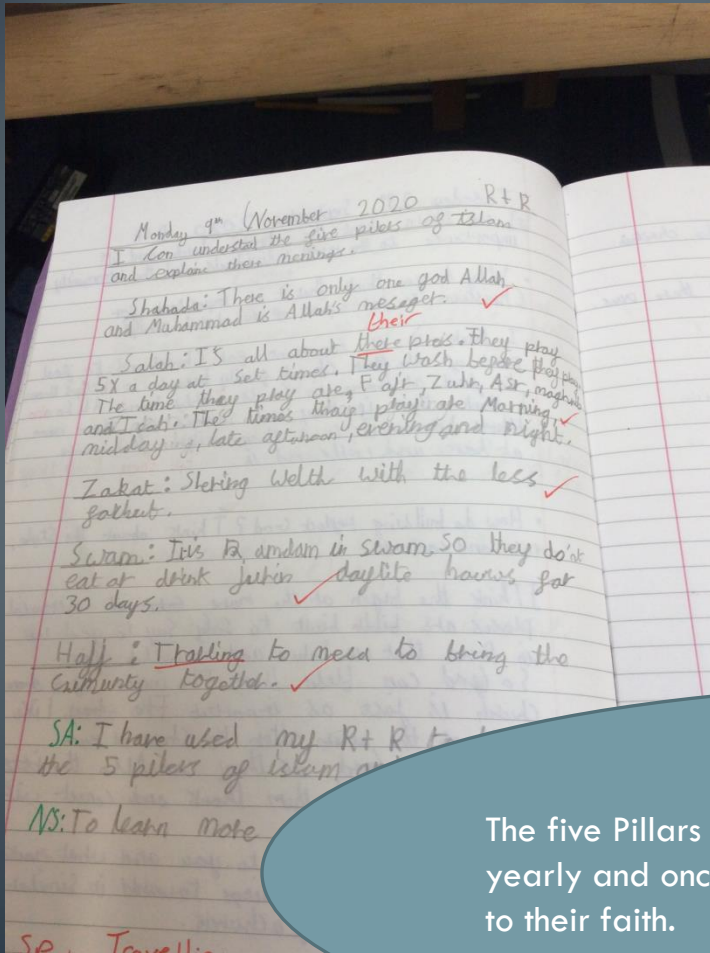 Monday 9th November 2020 R+R
I can understal the five pilers of Islam
and explane there menings.
Shahada: There is only one god Allah
and Muhammad is Allah's mesager.
their
Salah: IS all about there prais. They pray
5X a day at set times. They wash before they pray
The time they pray are, Fajr, Zuhr, Asr, maghrib
and Isah. The times thay pray are Morning,
midday, late afternoon, evening and night.
Zakat: Shering Welth with the less
Swam: It is Ramdam in swam. SO they do'nt
eat or drink daylite hours for
30 days.
Hajj: to meca to bring the
togethor.
SA: I have used my R+R to
the 5 pilers of islam
NS: To learn more
SP. Travelli
The five Pillars
yearly and onc
to their faith.